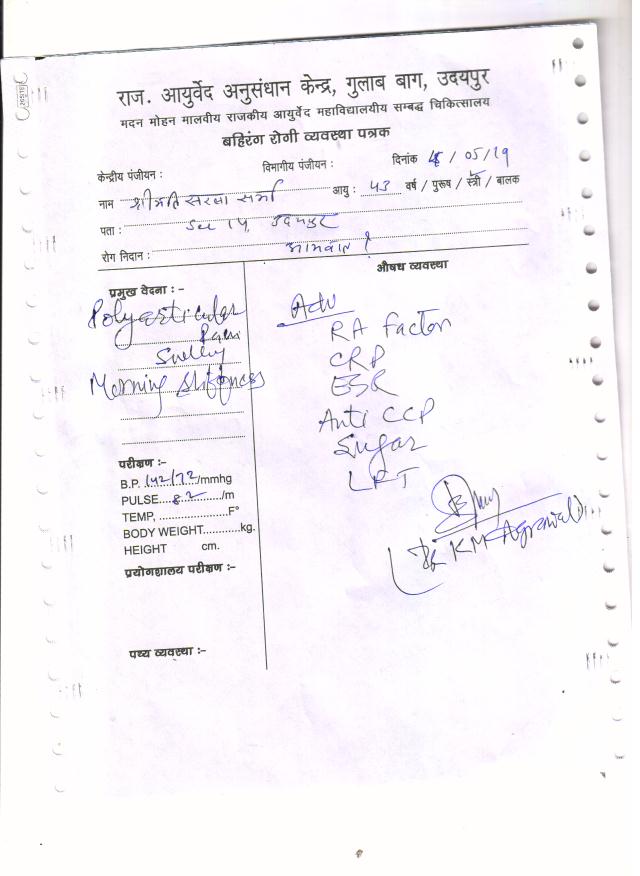 राज. आयुर्वेद अनुसंधान केन्द्र, गुलाब बाग, उदयपुर
मदन मोहन मालवीय राजकीय आयुर्वेद महाविद्यालयीय सम्बद्ध चिकित्सालय
बहिरंग रोगी व्यवस्था पत्रक
केन्द्रीय पंजीयन : विभागीय पंजीयन : दिनांक / 05/19
नाम श्रीमति सरला शर्मा आयु : 43 वर्ष / पुरूष / स्त्री / बालक
पता : Sec 14, उदयपुर
रोग निदान : आमवात ?
प्रमुख वेदना :-
Polyarticular
Pain
Swelling
Morning Stiffness
परीक्षण :-
B.P. 142/72/mmhg
PULSE....82..../m
TEMP, ....................F°
BODY WEIGHT...........kg.
HEIGHT cm.
प्रयोगशालय परीक्षण :-
पथ्य व्यवस्था :-
औषध व्यवस्था
Adv
RA Factor
CRP
ESR
Anti CCP
Sugar
LFT
Dr KM Agrawal